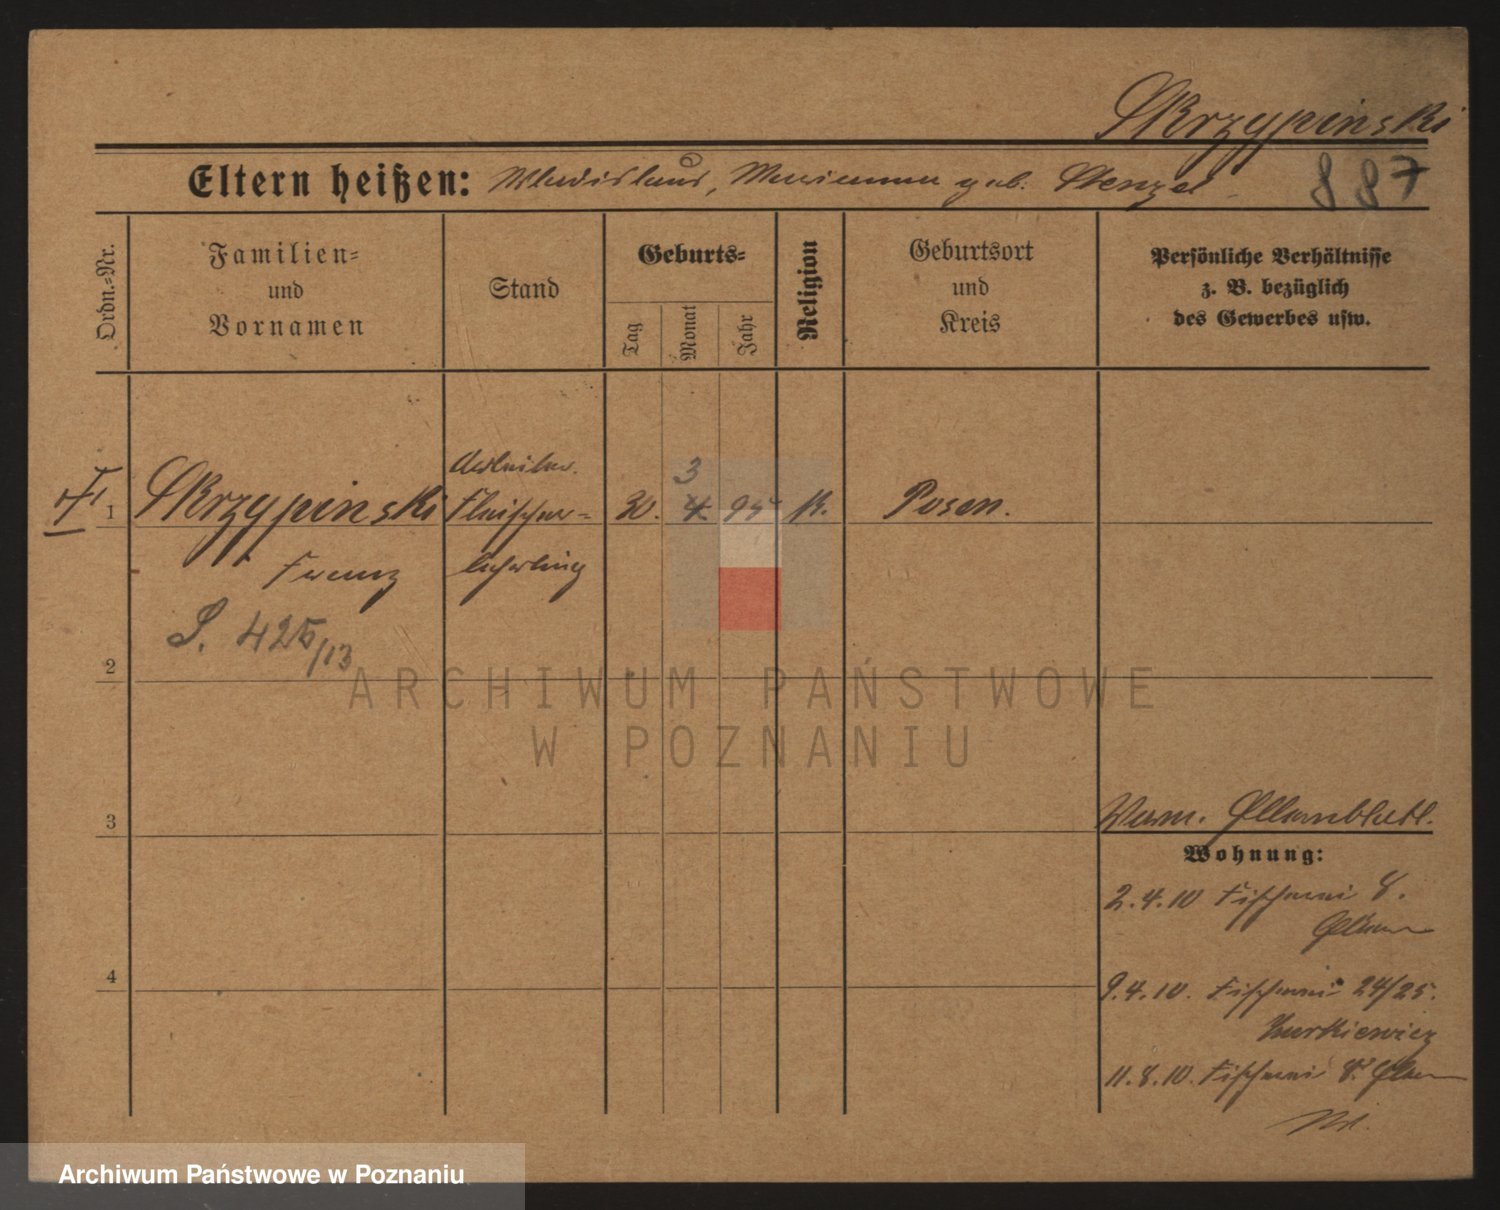 Skrzypinski
Eltern heißen: Wladislaus, Marianna geb. Stenzel
887
Ordn.=Nr.
Familien=
und
Vornamen
Stand
Geburts=
Tag
Monat
Jahr
Religion
Geburtsort
und
Kreis
Persönliche Verhältnisse
z. B. bezüglich
des Gewerbes usw.
1
Skrzypinski
Franz
Arbeiter.
Fleischer=
lehrling
30.
3
4.
95
K.
Posen.
S. 425/13
2
ARCHIWUM PAŃSTWOWE
W POZNANIU
3
Wohnung:
2.4.10 Fischerei 8.
4
9.4.10. Fischerei 24/25.
11.8.10. Fischerei 8.
Archiwum Państwowe w Poznaniu